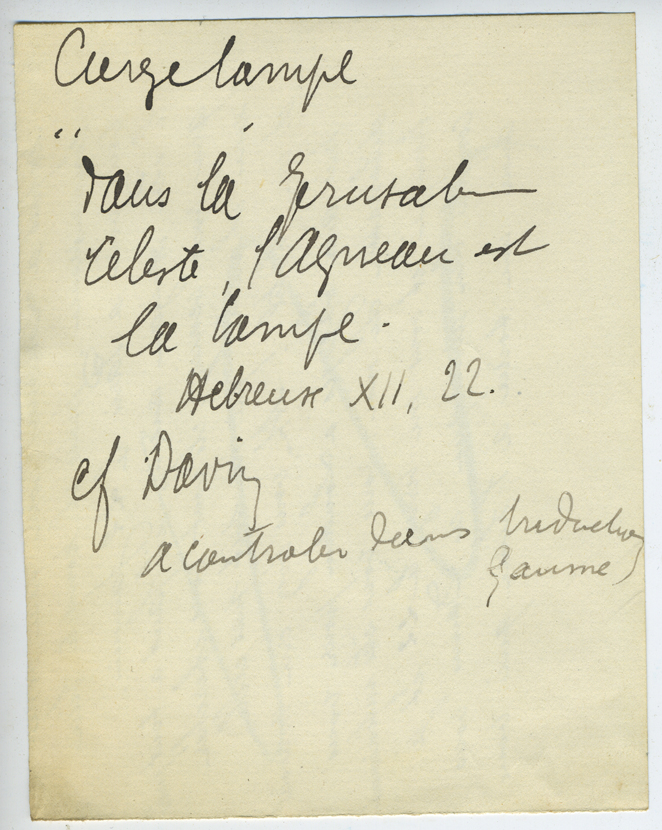 Cierge lampe
" dans la Jerusalem
céleste, l'Agneau est
la lampe.
Hebreux XII, 22.
cf Davin
a controler dans traduction
Gaume)